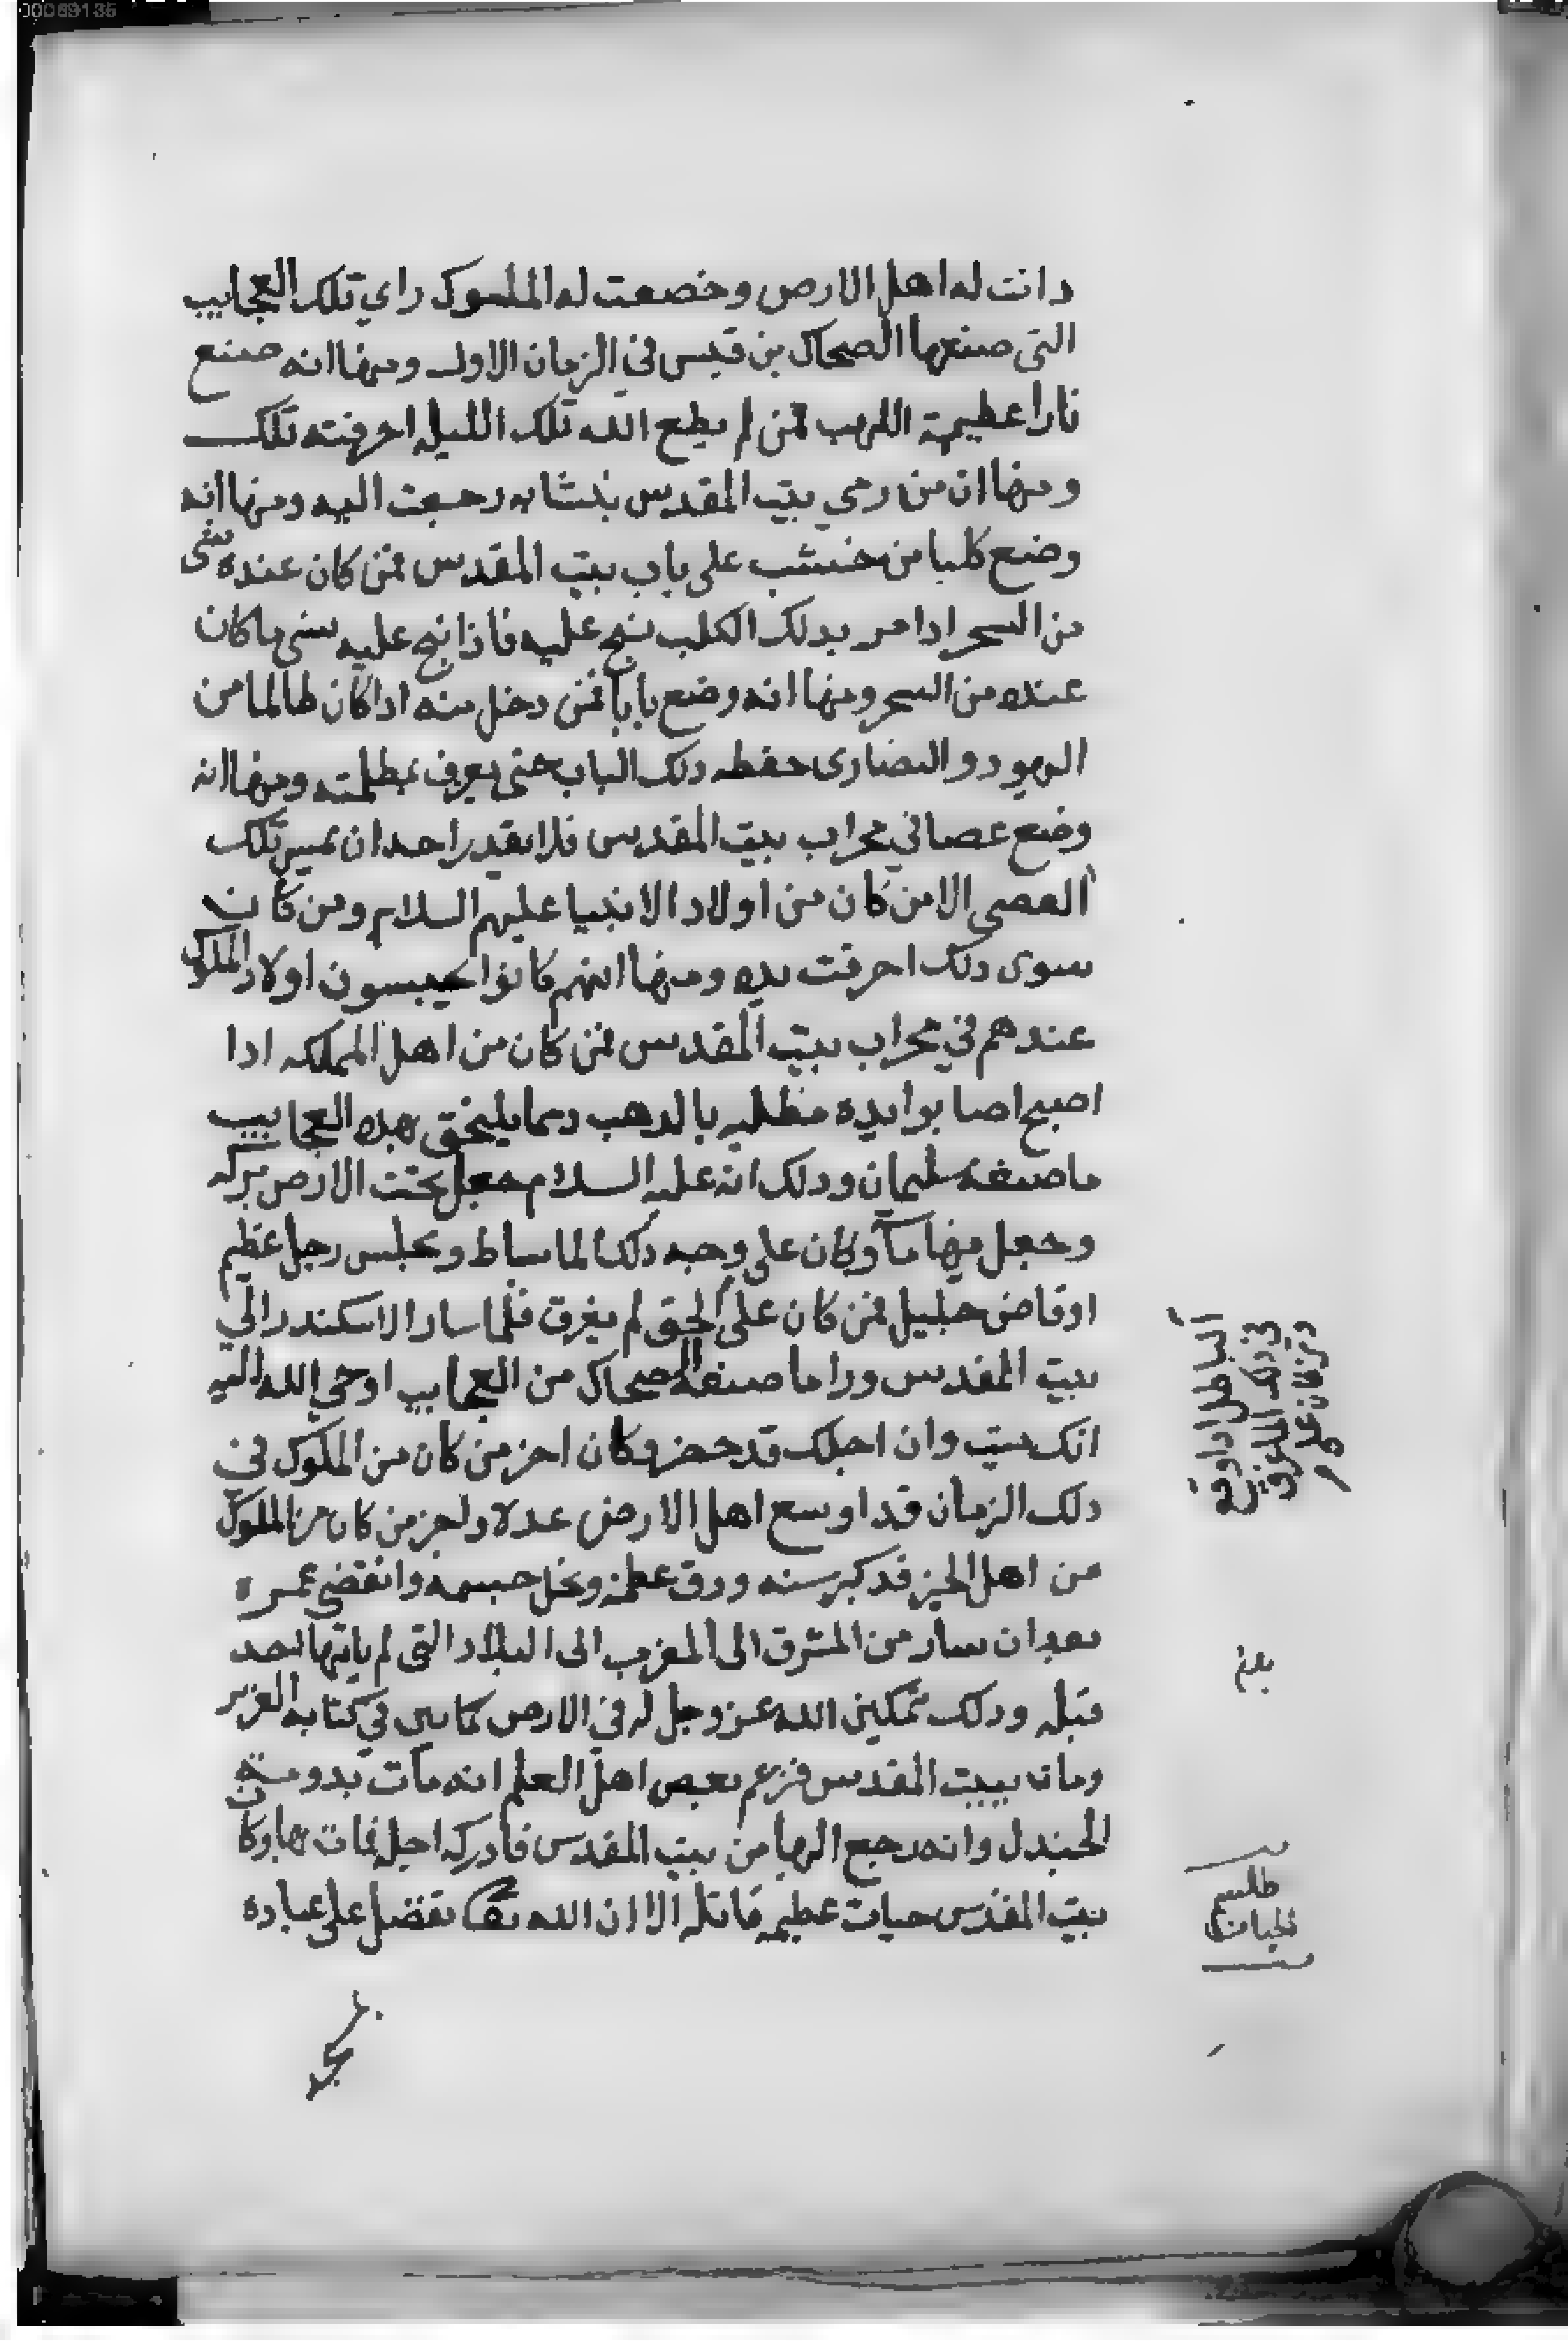 دانت له اهل الارض وخضعت له الملوك راي تلك العجايب
التي صنعها الضحاك بن قيس في الزمان الاول ومنها انه صنع
نارا عظيمة اللهب فمن لم يطع الله تلك الليله احرقته تلك
ومنها ان من رمي بيت المقدس بنشابه رجعت اليه ومنها انه
وضع كلبا من خشب على باب بيت المقدس فمن كان عنده شي
من السحر اذا مر بذلك الكلب نبح عليه فاذا نبح عليه نسي ما كان
عنده من السحر ومنها انه وضع بابا فمن دخل منه اذا كان ظالما من
اليهود والنصارى ضغطه ذلك الباب حتى يعرف بظلمته ومنها انه
وضع عصا في محراب بيت المقدس فلا يقدر احد ان يمس تلك
العصى الا من كان من اولاد الانبيا عليهم السلام ومن كان
سوى ذلك احرقت يده ومنها انهم كانوا يحبسون اولاد الملوك
عندهم في محراب بيت المقدس فمن كان من اهل المملكه اذا
اصبح اصابوا يده مطليه بالذهب ومما يلتحق بهذه العجايب
ما صنعه سليمان وذلك انه عليه السلام جعل تحت الارض بركه
وجعل فيها مآ وكان على وجه ذلك الما بساط ومجلس رجل عظيم
او قاض جليل فمن كان على الحق لم يغرق فلما سار الاسكندر الي
بيت المقدس ورا ما صنعه الضحاك من العجايب اوحي الله اليه
انك ميت وان اجلك قد حضر وكان اخر من كان من الملوك في
ذلك الزمان قد اوسع اهل الارض عدلا ولعز من كان من الملوك
من اهل الخير قد كبر سنه ورق عظمه ونحل جسمه وانقضي عمره
بعد ان سار من المشرق الى المغرب الى البلاد التي لم ياتها احد
قبله وذلك تمكين الله عز وجل له في الارض كما بين في كتابه العزيز
ومات ببيت المقدس فزعم بعض اهل العلم انه مات بدومة
الجندل وانه رجع اليها من بيت المقدس فادركه اجله فمات بها وكان
ببيت المقدس حيات عظيمه قاتله الا ان الله تعالى تفضل على عباده
الباطل اذا وقع
في ذلك الما غرق
ومن كان على
بلغ
طلسم
الحيات